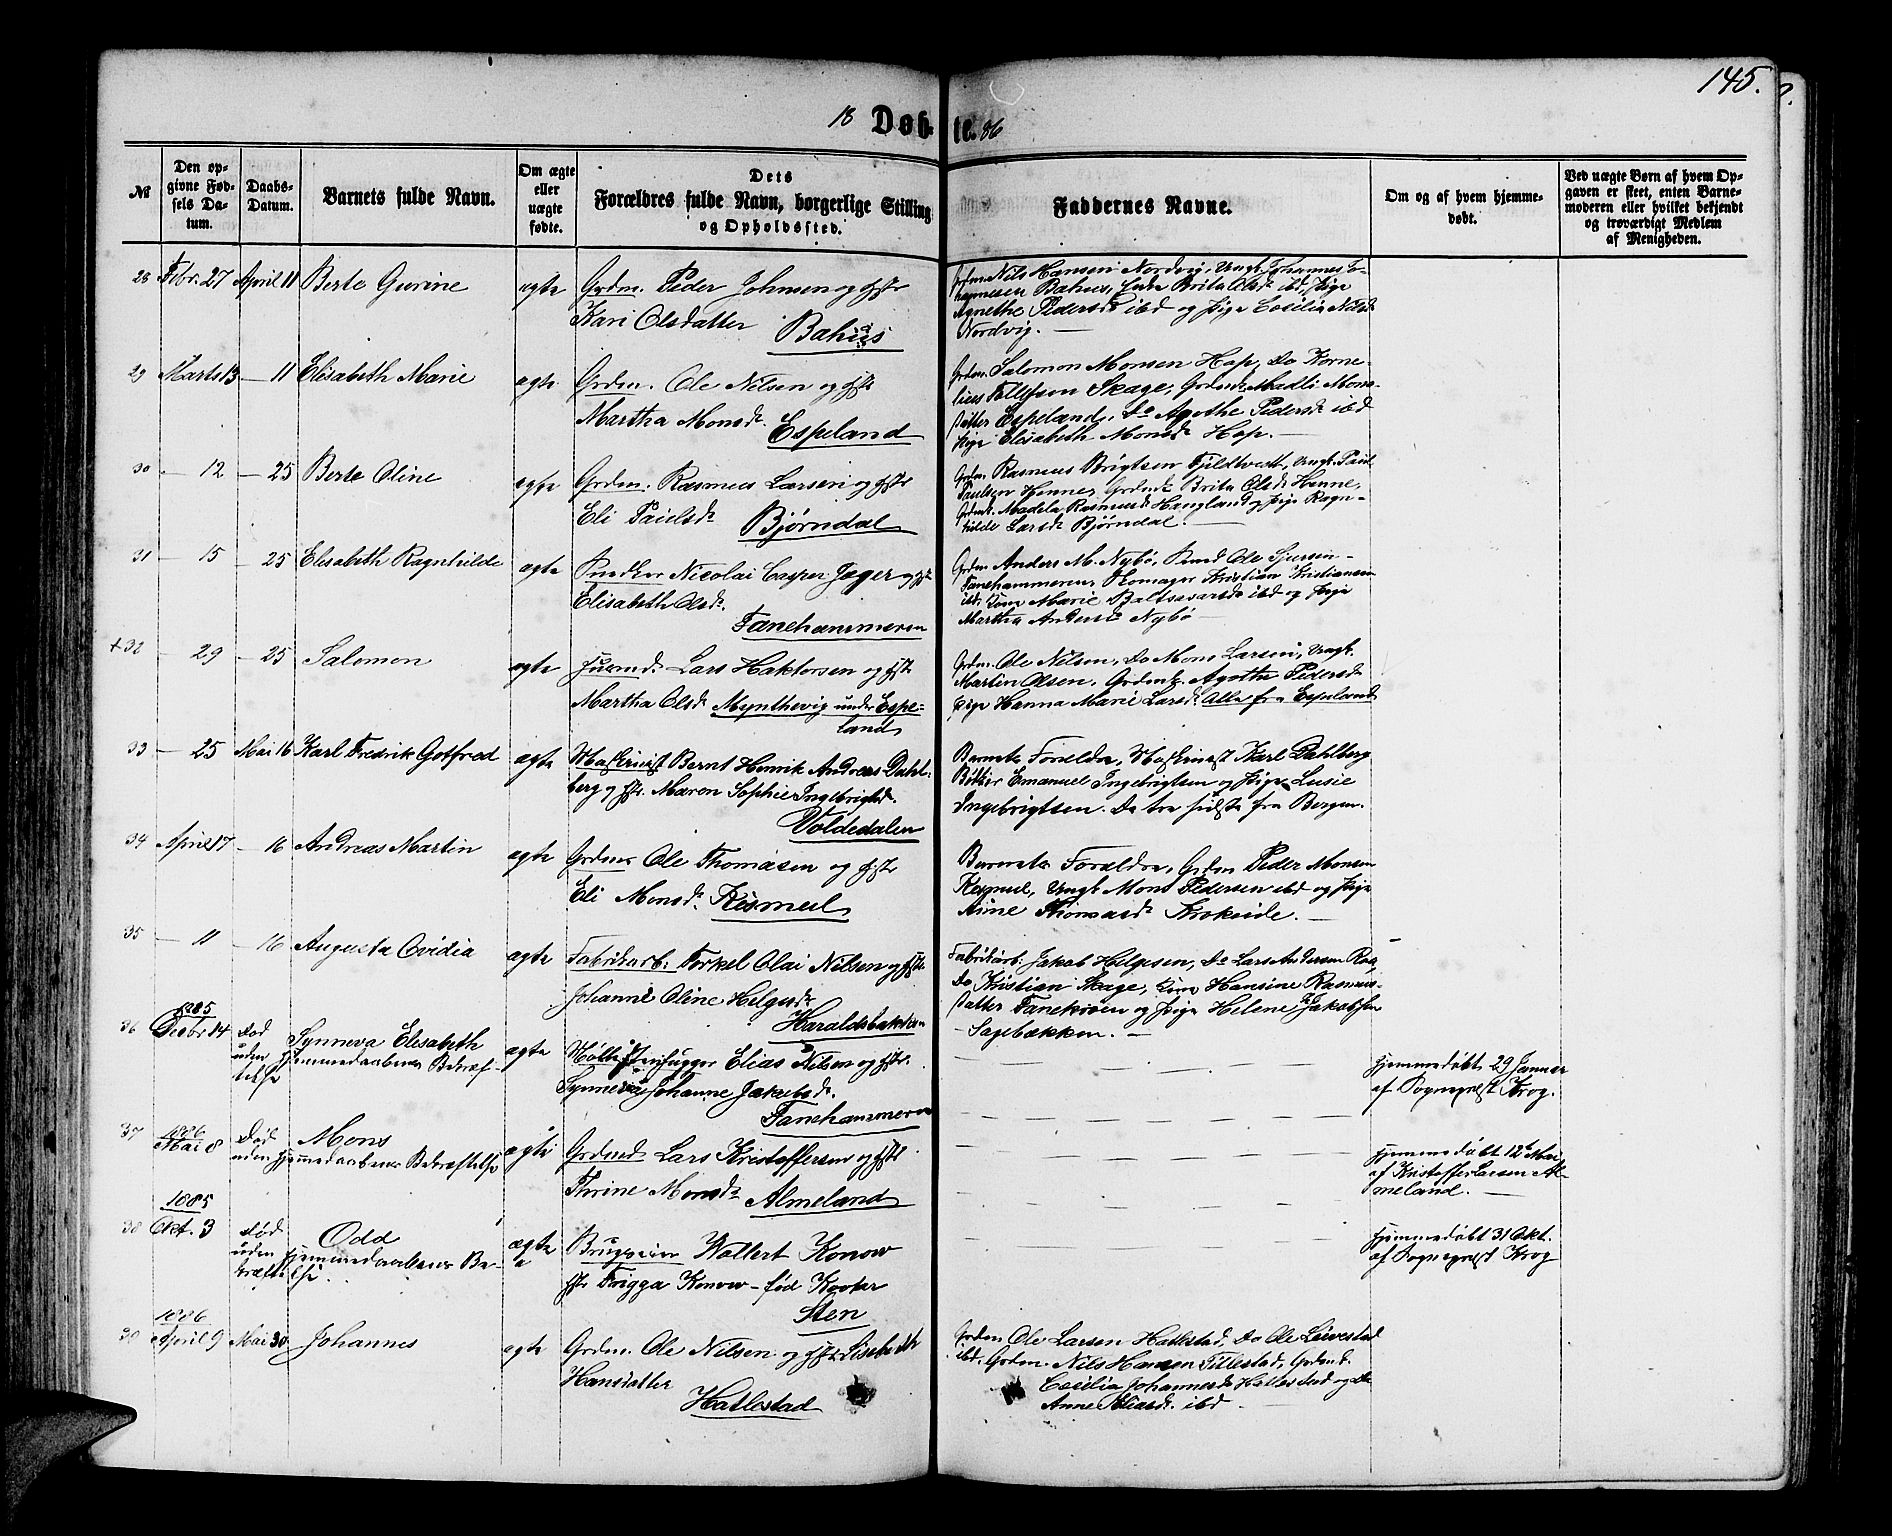 145.
18 Døb- te. 86
№
Den op-
givne Fød-
sels Da-
tum.
Daabs-
Datum.
Barnets fulde Navn.
Om ægte
eller
uægte
fødte.
Dets
Forældres fulde Navn, borgerlige Stilling
og Opholdssted.
Faddernes Navne.
Om og af hvem hjemme-
døbt.
Ved uægte Børn af hvem Op-
gaven er skeet, enten Barne-
moderen eller hvilket bekjendt
og troværdigt Medlem
af Menigheden.
28 Febr. 27 April 11 Berte Gurine ægte Grdm. Peder Johnsen og Hstr
Kari Olsdatter Bahus
Grdm. Nils Hansen Nordvig, Ungk. Johannes Jo-
hannesen Bahus, Enke Brita Olsd. ibd, Pige
Agnethe Pedersd ibd og Pige Cecilia Nilsd
Nordvig. —
29 Marts 13 — 11 Elisabeth Marie ægte Grdm. Ole Nilsen og Hstr
Martha Monsd. Espeland
Grdm. Salomon Monsen Hop, Do Korne-
lius Tollefsen Skage, Grdmk. Madli Mons-
datter Espeland, Do Agothe Pedersd ibd
Pige Elisabeth Monsd Hop. —
30 — 12 — 25 Berte Oline ægte Grdm. Rasmus Larsen og Hstr
Eli Paulsdr Bjørndal
Grdm. Rasmus Brigtsen Fjeldtvedt, Ungk. Paul
Paulsen Henne, Grdmk Brita Olsd. Henne,
Grdmk. Madela Rasmusd. Haugland og Pige Ragn-
hilde Larsd. Bjørndal. —
31 — 15 — 25 Elisabeth Ragnhilde ægte Snedker Nicolai Casper Jæger og Hstr
Elisabeth Olsd. Fanehammeren
Grdm. Anders M. Nybø, Smed Ole Sjursen
Fanehammeren, Skomager Kristian Kristiansen
ibd. Kone Marie Baltsersd ibd og Pige
Martha Andersd Nybø —
+32 — 29 — 25 Salomon ægte Husmd. Lars Haktorsen og Hstr
Martha Olsd. Mynthevig under Espe-
land
Grdm. Ole Nilsen, Do Mons Larsen, Ungk.
Martin Olsen, Grdmk. Agothe Pedersd
Pige Hanna Marie Larsd. Alle fra Espeland
33 — 25 Mai 16 Karl Fredrik Gotfred ægte Maskinist Bernt Henrik Andreas Dahl-
berg og Hstr. Maren Sophie Ingebrigtsd.
Voldedalen
Barnets Forældre, Maskinist Karl Dahlberg
Bødker Emanuel Ingebrigtsen og Pige Lusie
Ingebrigtsen. De tre sidste fra Bergen.
34 April 17 — 16 Andreas Martin ægte Grdm. Ole Thomasen og Hstr
Eli Monsdr. Røsmul
Barnets Forældre, Grdm Peder Monsen
Røsmul, Ungk Mons Pedersen ibd og Pige
Anne Thomasdr Krokeide. —
35 — 11 — 16 Augusta Ovidia ægte Fabrikarb. Torkel Olai Nilsen og Hstr
Johanne Oline Helgesd. Haraldsbakken
Fabrikarb. Jakob Helgesen, Do Lars Andersen Raa,
Do Kristian Skage, Kone Hansine Rasmus-
datter Fanekroen og Pige Helene Jakobsen
Sagebækken. —
36 1885
Decbr 14 Død
uden Hjemmedaabens Bekræf-
telse Synneva Elisabeth ægte Møllestenhugger Elias Nilsen og Hstr.
Synneva Johanne Jakobsd.
Fanehammeren
Hjemmedøbt 29 Januar
af Sognepræst Krog.
37 1886
Mai 8 Død
uden Hjemmedaabens Bekræftelse Mons ægte Grdmd. Lars Kristoffersen og Hstr
Thrine Monsdr Almeland
Hjemmedøbt 12te Mai
af Kristoffer Larsen Al-
meland. —
38 1885
Okt. 3 Død
uden Hjemmedaabens Be-
kræftelse. Odd ægte Brugseier Wollert Konow
Hstr Frigga Konow — født
Sten
Hjemmedøbt 31 Okt.
af Sognepræst Krog
39 1886
April 9 Mai 30 Johannes ægte Grdm. Ole Nilsen og Hstr Lisebeth
Hansdatter Hatlestad
Grdm. Ole Larsen Hatlestad, Do Ole
ibd. Grdm. Nils Hansen Titlestad, Grdmk.
Cecilia Johannesd. Hatlestad og
Anne Eliasd. ibd. —